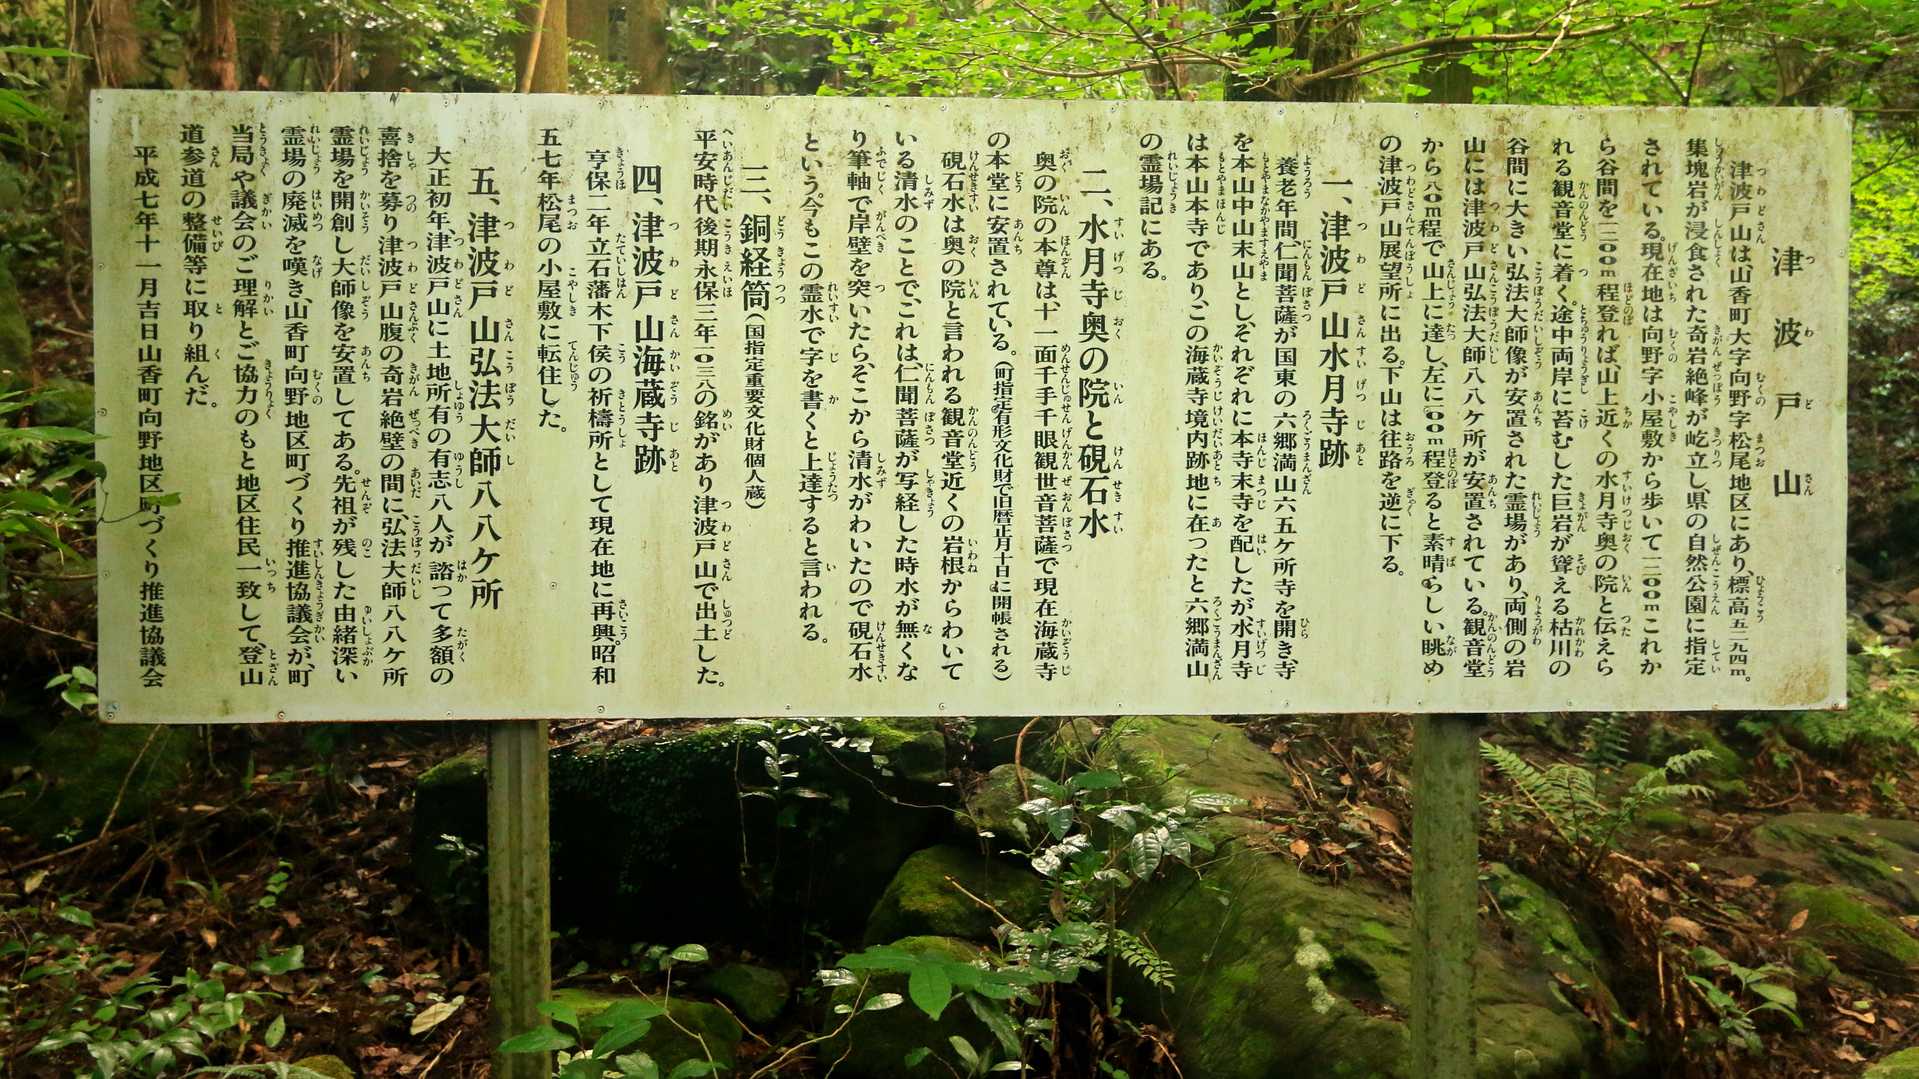 津波戸山
津波戸山は、山香町大字向野字松尾地区にあり、標高五二九四m。
集塊岩が浸食された奇岩絶峰が屹立し、県の自然公園に指定
されている。現在地は向野字小屋敷から歩いて一二〇〇mこれか
ら谷間を一二〇〇m程登れば、山上近くの水月寺奥の院と伝えら
れる観音堂に着く。途中両岸に苔むした巨岩が聳える枯川の
谷間に大きい弘法大師像が安置された霊場があり、両側の岩
山には津波戸山弘法大師八八ケ所が安置されている。観音堂
から八〇m程で山上に達し、左に一〇〇m程登ると素晴らしい眺め
の津波戸山展望所に出る。下山は往路を逆に下る。
一、津波戸山水月寺跡
養老年間、仁聞菩薩が国東の六郷満山六五ケ所寺を開き寺
を本山中山末山とし、それぞれに本寺末寺を配したが、水月寺
は本山本寺であり、この海蔵寺境内跡地に在ったと六郷満山
の霊場記にある。
二、水月寺奥の院と硯石水
奥の院の本尊は、十一面千手千眼観世音菩薩で現在海蔵寺
の本堂に安置されている。(町指定有形文化財で旧暦正月十日に開帳される)
硯石水は奥の院と言われる観音堂近くの岩根からわいて
いる清水のことで、これは、仁聞菩薩が写経した時水が無くな
り筆軸で岸壁を突いたら、そこから清水がわいたので硯石水
という。今もこの霊水で字を書くと上達すると言われる。
三、銅経筒(国指定重要文化財個人蔵)
平安時代後期永保三年一〇三八の銘があり津波戸山で出土した。
四、津波戸山海蔵寺跡
享保二年立石藩木下侯の祈禱所として現在地に再興。昭和
五七年松尾の小屋敷に転住した。
五、津波戸山弘法大師八八ケ所
大正初年、津波戸山に土地所有の有志八人が諮つて多額の
喜捨を募り津波戸山腹の奇岩絶壁の間に弘法大師八八ケ所
霊場を開創し大師像を安置してある。先祖が残した由緒深い
霊場の廃滅を嘆き、山香町向野地区町づくり推進協議会が、町
当局や議会のご理解とご協力のもと地区住民一致して、登山
道参道の整備等に取り組んだ。
平成七年十一月吉日山香町向野地区町づくり推進協議会